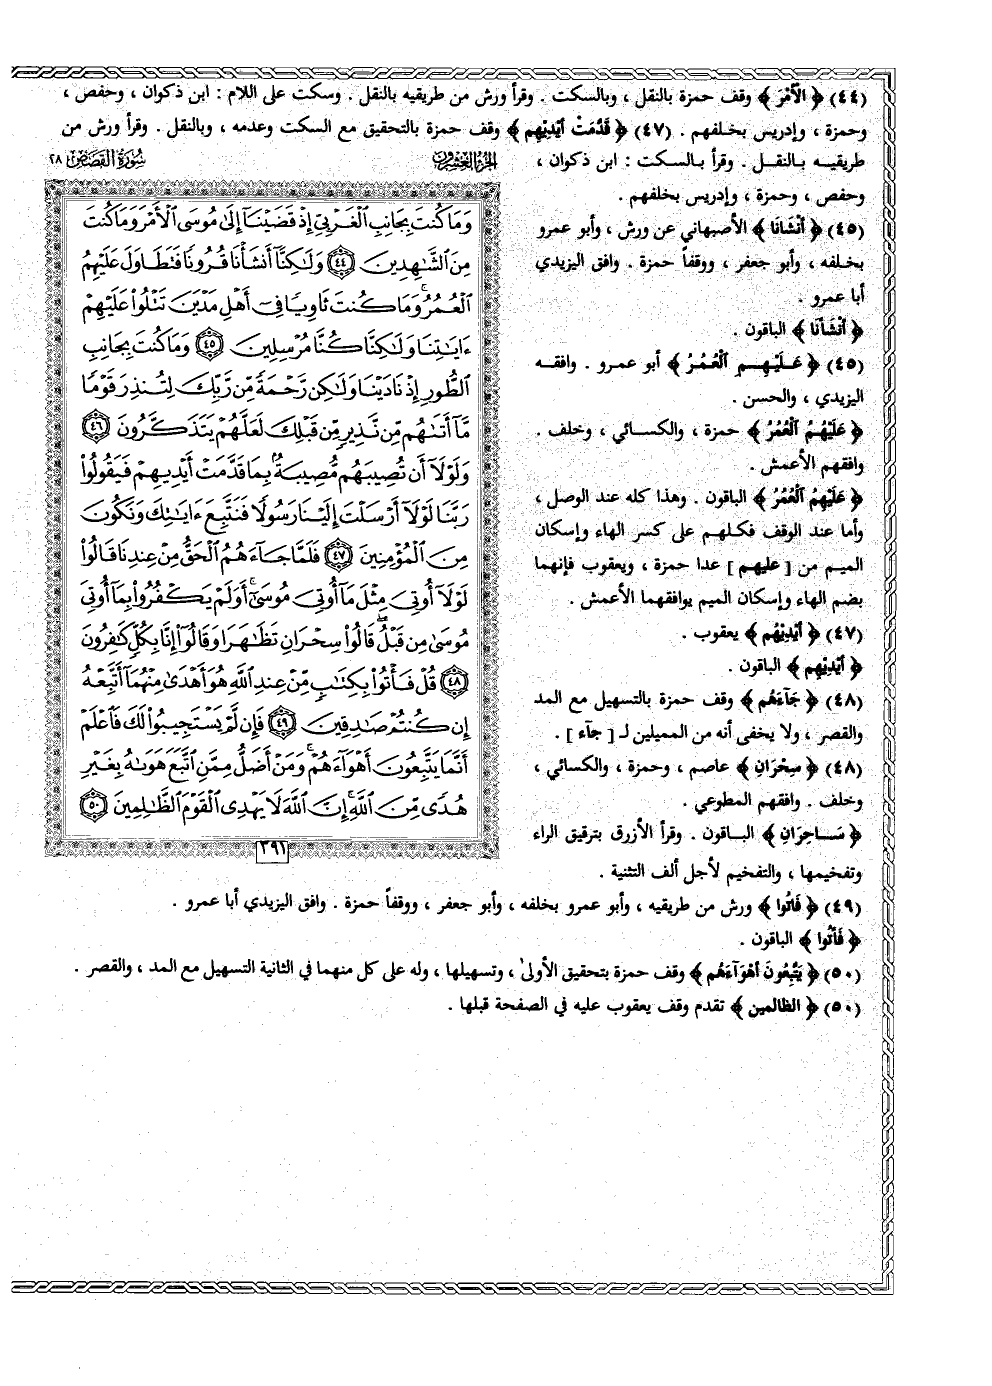 (٤٤) ﴿ الأَمْرَ ﴾ وقف حمزة بالنقل ، وبالسكت . وقرأ ورش من طريقيه بالنقل . وسكت على اللام : ابن ذكوان ، وحفص ،
وحمزة ، وإدريس بخلفهم . (٤٧) ﴿ قَدَّمَتْ أَيْدِيْهِم ﴾ وقف حمزة بالتحقيق مع السكت وعدمه ، وبالنقل . وقرأ ورش من
طريقيـه بالنقـل . وقرأ بـالسكت : ابن ذكوان ،
وحفص ، وحمزة ، وإدريس بخلفهم .
(٤٥) ﴿ أَنْشَانَا ﴾ الأصبهاني عن ورش ، وأبو عمرو
بخلفه ، وأبو جعفر ، ووقفاً حمزة . وافق اليزيدي
أبا عمرو .
﴿ أَنْشَأْنَا ﴾ الباقون .
(٤٥) ﴿ عَـلَيْهِـمِ الْعُمُرُ ﴾ أبو عمـرو . وافقـه
اليزيدي ، والحسن .
﴿ عَلَيْهُمُ الْعُمُرُ ﴾ حمزة ، والكسائي ، وخلف .
وافقهم الأعمش .
﴿ عَلَيْهِمُ الْعُمُرُ ﴾ الباقون . وهذا كله عند الوصل ،
وأما عند الوقف فكلهـم على كسر الهاء وإسكان
الميم من [ عليهم ] عدا حمزة ، ويعقوب فإنهما
بضم الهاء وإسكان الميم يوافقهما الأعمش .
(٤٧) ﴿ أَيْدِيْهُم ﴾ يعقوب .
﴿ أَيْدِيْهِم ﴾ الباقون .
(٤٨) ﴿ جَآءَهُم ﴾ وقف حمزة بالتسهيل مع المد
والقصر ، ولا يخفى أنه من المميلين لـ [ جآء ] .
(٤٨) ﴿ سِحْرَانِ ﴾ عاصم ، وحمزة ، والكسائي ،
وخلف . وافقهم المطوعي .
﴿ سَـاحِرَانِ ﴾ البـاقون . وقرأ الأزرق بترقيق الراء
وتفخيمها ، والتفخيم لأجل ألف التثنية .
(٤٩) ﴿ فَاتُوا ﴾ ورش من طريقيه ، وأبو عمرو بخلفه ، وأبو جعفر ، ووقفاً حمزة . وافق اليزيدي أبا عمرو .
﴿ فَأْتُوا ﴾ الباقون .
(٥٠) ﴿ يَتَّبِعُونَ أَهْوَآءَهُم ﴾ وقف حمزة بتحقيق الأولىٰ ، وتسهيلها ، وله على كل منهما في الثانية التسهيل مع المد ، والقصر .
(٥٠) ﴿ الظالمين ﴾ تقدم وقف يعقوب عليه في الصفحة قبلها .
الجزء العشرون
سورة القصص ٢٨
وَمَا كُنتَ بِجَانِبِ ٱلْغَرْبِيِّ إِذْ قَضَيْنَآ إِلَىٰ مُوسَى ٱلْأَمْرَ وَمَا كُنتَ
مِنَ ٱلشَّـٰهِدِينَ ٤٤ وَلَـٰكِنَّآ أَنشَأْنَا قُرُونًا فَتَطَاوَلَ عَلَيْهِمُ
ٱلْعُمُرُ ۚ وَمَا كُنتَ ثَاوِيًا فِىٓ أَهْلِ مَدْيَنَ تَتْلُوا۟ عَلَيْهِمْ
ءَايَـٰتِنَا وَلَـٰكِنَّا كُنَّا مُرْسِلِينَ ٤٥ وَمَا كُنتَ بِجَانِبِ
ٱلطُّورِ إِذْ نَادَيْنَا وَلَـٰكِن رَّحْمَةً مِّن رَّبِّكَ لِتُنذِرَ قَوْمًا
مَّآ أَتَىٰهُم مِّن نَّذِيرٍ مِّن قَبْلِكَ لَعَلَّهُمْ يَتَذَكَّرُونَ ٤٦
وَلَوْلَآ أَن تُصِيبَهُم مُّصِيبَةٌۢ بِمَا قَدَّمَتْ أَيْدِيهِمْ فَيَقُولُوا۟
رَبَّنَا لَوْلَآ أَرْسَلْتَ إِلَيْنَا رَسُولًا فَنَتَّبِعَ ءَايَـٰتِكَ وَنَكُونَ
مِنَ ٱلْمُؤْمِنِينَ ٤٧ فَلَمَّا جَآءَهُمُ ٱلْحَقُّ مِنْ عِندِنَا قَالُوا۟
لَوْلَآ أُوتِىَ مِثْلَ مَآ أُوتِىَ مُوسَىٰٓ ۚ أَوَلَمْ يَكْفُرُوا۟ بِمَآ أُوتِىَ
مُوسَىٰ مِن قَبْلُ ۖ قَالُوا۟ سِحْرَانِ تَظَـٰهَرَا وَقَالُوٓا۟ إِنَّا بِكُلٍّ كَـٰفِرُونَ
٤٨ قُلْ فَأْتُوا۟ بِكِتَـٰبٍ مِّنْ عِندِ ٱللَّهِ هُوَ أَهْدَىٰ مِنْهُمَآ أَتَّبِعْهُ
إِن كُنتُمْ صَـٰدِقِينَ ٤٩ فَإِن لَّمْ يَسْتَجِيبُوا۟ لَكَ فَٱعْلَمْ
أَنَّمَا يَتَّبِعُونَ أَهْوَآءَهُمْ ۚ وَمَنْ أَضَلُّ مِمَّنِ ٱتَّبَعَ هَوَىٰهُ بِغَيْرِ
هُدًى مِّنَ ٱللَّهِ ۚ إِنَّ ٱللَّهَ لَا يَهْدِى ٱلْقَوْمَ ٱلظَّـٰلِمِينَ ٥٠
٣٩١